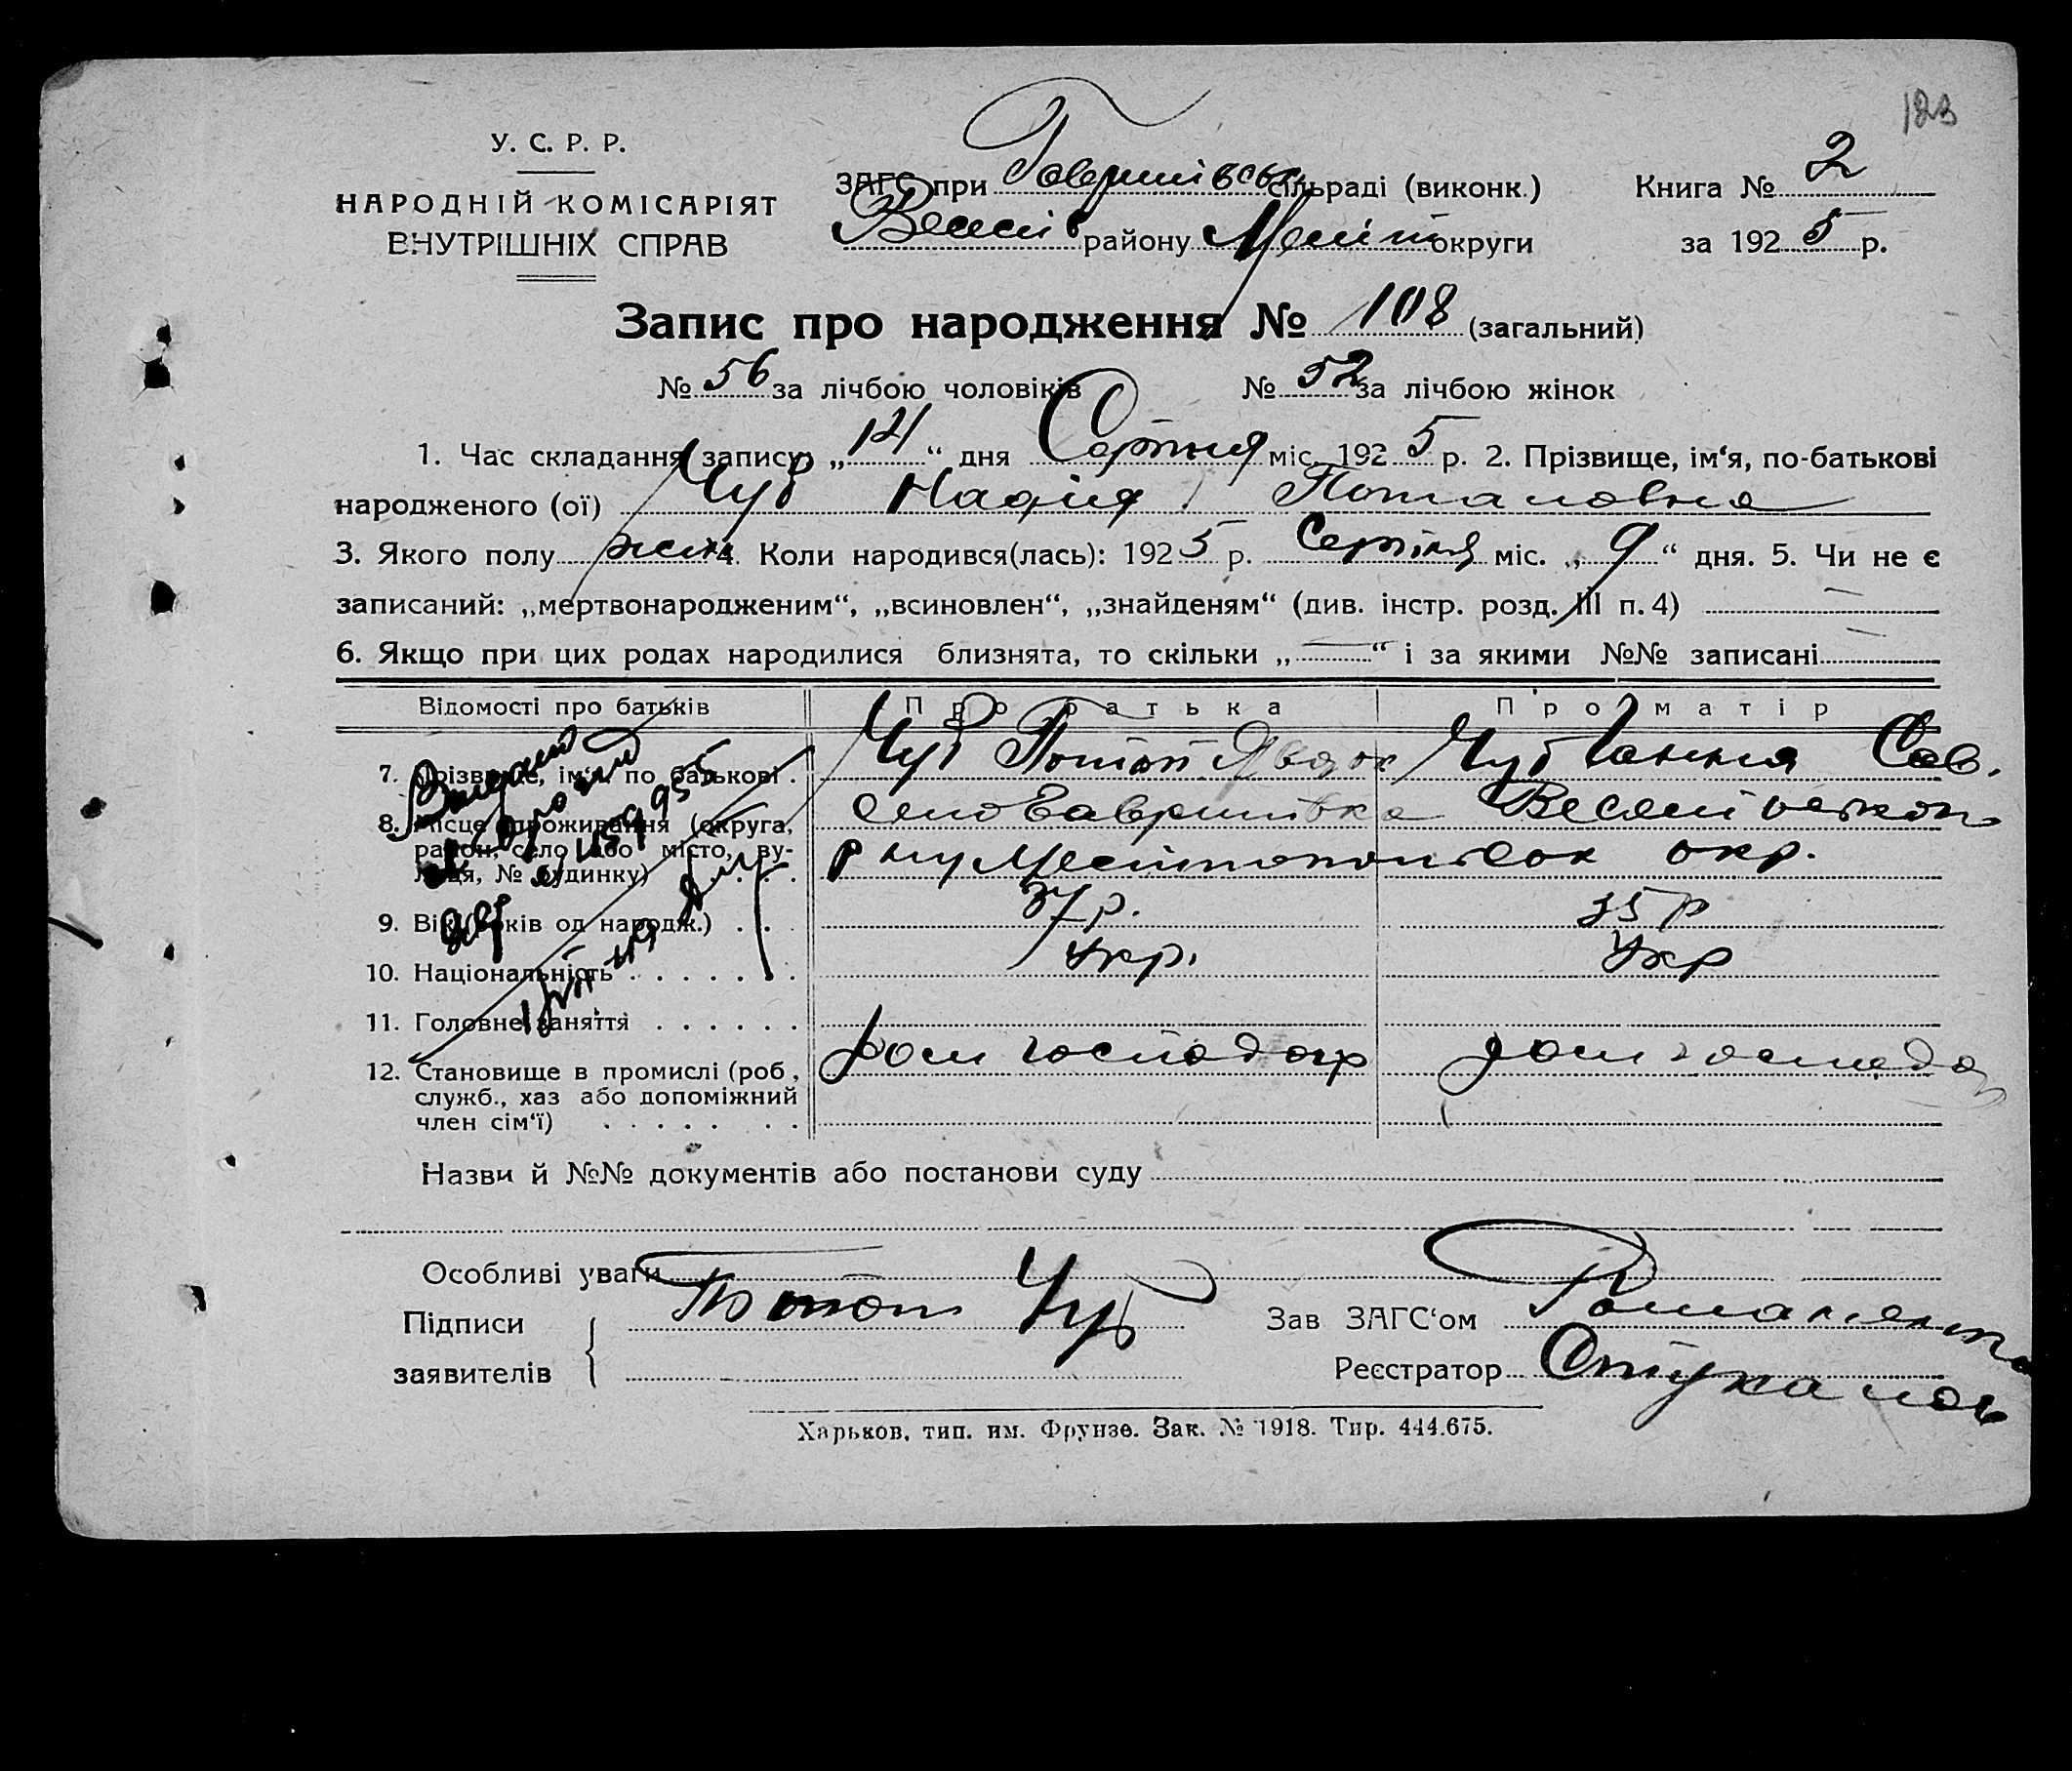 123
У. С. Р. Р.
НАРОДНІЙ КОМІСАРІЯТ
ВНУТРІШНІХ СПРАВ
ЗАГС при Гаврилівськ сільраді (виконк.)
Веселів району Меліт округи
Книга № 2
за 1925 р.
Запис про народження № 108 (загальний)
№ 56 за лічбою чоловіків № 52 за лічбою жінок
1. Час складання запису „14“ дня Серпня міс. 1925 р. 2. Прізвище, ім‘я, по-батькові
народженого (ої) Чуб Надія Потаповна
3. Якого полу жен 4. Коли народився(лась): 1925 р. Серпня міс. „9“ дня. 5. Чи не є
записаний: „мертвонародженим“, „всиновлен“, „знайденям“ (див. інстр. розд. III п. 4) —
6. Якщо при цих родах народилися близнята, то скільки „—“ і за якими №№ записані —
Відомості про батьків Про батька Про матір
7. Прізвище, ім‘я, по батькові . Чуб Потап Чуб Ганна Сав.
8. Місце проживання (округа, село Гаврилівка
район, село або місто, ву-
лиця, № будинку) . . . р ну Мелітопольськ окр.
9. Вік (років од народж.) . . . 37 р. 35 р
10. Національність . . . . . . . Укр. Укр
11. Головне заняття . . . . . .
12. Становище в промислі (роб., дом господар дом господа
служб., хаз або допоміжний
член сім‘ї) . . . . . . .
Назви й №№ документів або постанови суду
Особливі уваги
Підписи Потап Чуб Зав ЗАГС‘ом
заявителів Реєстратор
Харьков, тип. им. Фрунзе. Зак. № 1918. Тир. 444.675.